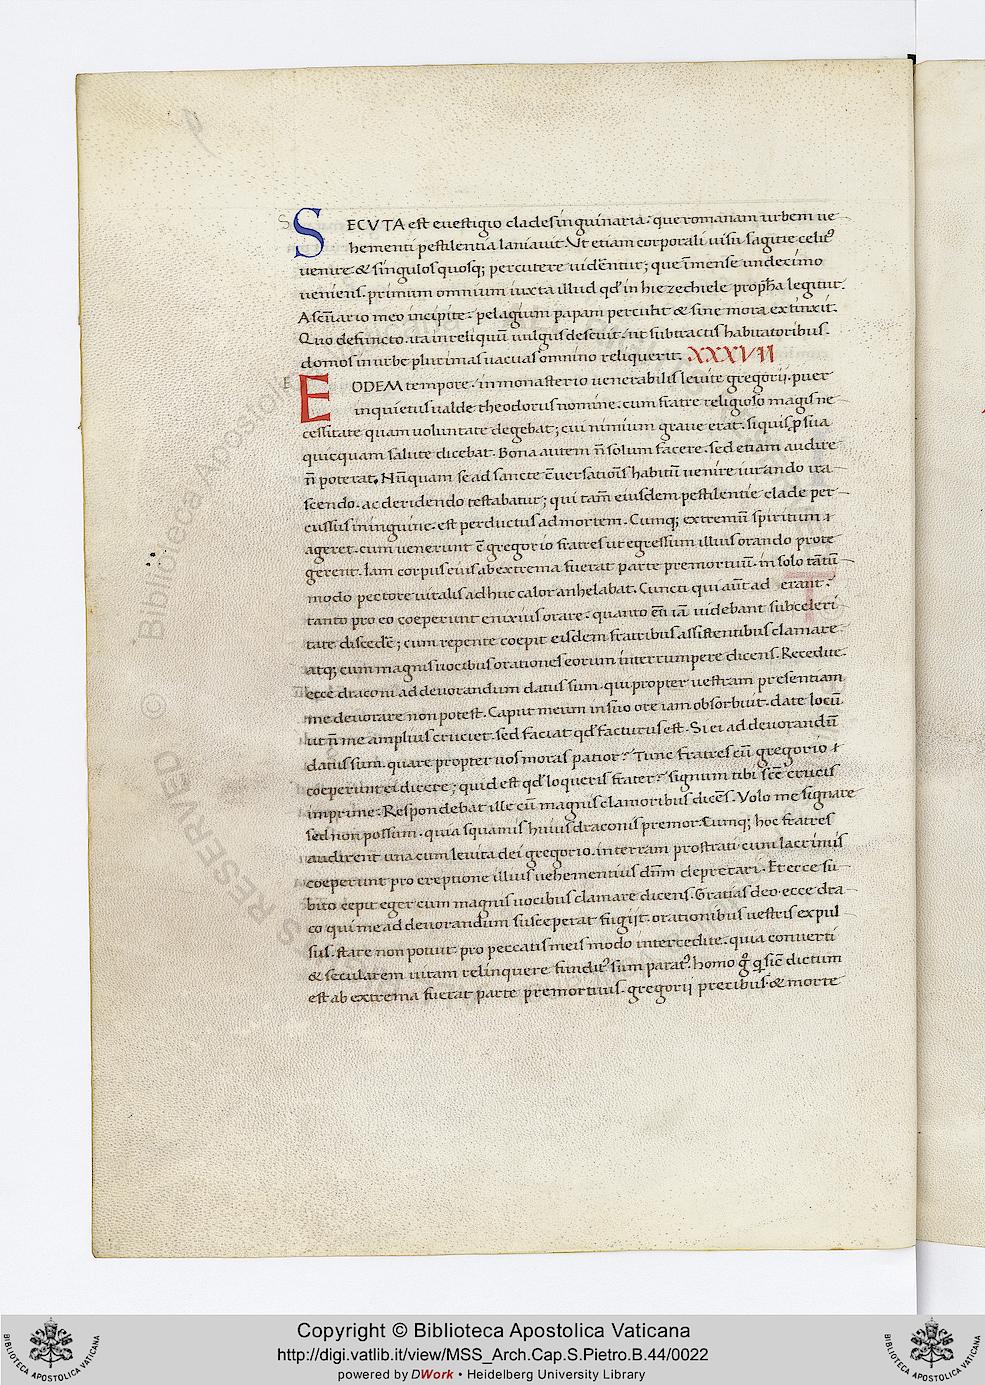 S ECVTA est euestigio clades inguinaria· que romanam urbem ue
hementi pestilentia laniauit. Vt etiam corporali uisu sagitte celit᷒
uenire & singulos quosq; percutere uidẽntur; que ĩmense undecimo
ueniens. primum omnium iuxta illud qđ in hiezechiele propħa legitur.
A scũario meo incipite· pelagium papam perculit & sine mora extinxit.
Quo defuncto. ita in reliquũ uulgus desæuit. ut subtractis habitatoribus.
domos in urbe plurimas uacuas omnino reliquerit. XXXVII
E ODEM tempore. in monasterio uenerabilis leuite gregorii. puer
inquietus ualde theodorus nomine. cum fratre religioso magis ne
cessitate quam uoluntate degebat; cui nimium graue erat. siquis ꝓ sua
quicquam salute dicebat. Bona autem ñ solum facere. sed etiam audire
ñ poterat. Nũquam se ad sancte c̃uersatiõis habitũ uenire iurando ira
scendo. ac deridendo testabatur; qui tam̃ eiusdem pestilentie clade per
cussus in inguine. est perductus ad mortem. Cumq; extremũ spiritum
ageret. cum uenerunt c̃ gregorio fratres ut egressum illius orando prote
gerent. Iam corpus eius ab extrema fuerat parte premortuũ. in solo tãtũ
modo pectore uitalis adhuc calor anhelabat. Cuncti qui aũt ad erant.
tanto pro eo coeperunt enixius orare. quanto eũ iã uidebant sub celeri
tate discedẽ; cum repente coepit eisdem fratribus assistentibus clamare
atq; cum magnis uocibus orationes eorum interrumpere dicens. Recedite.
ecce draconi ad deuorandum datus sum. qui propter uestram presentiam
me deuorare non potest. Caput meum in suo ore iam obsorbuit. date locũ.
ut ñ me amplius cruciet. sed faciat qđ facturus est. Si ei ad deuorandũ
datus sum. quare propter uos moras patior? Tunc fratres cũ gregorio
coeperunt ei dicere; quid est qđ loqueris frater? signum tibi sc̃e crucis
imprime. Respondebat ille cũ magnis clamoribus dicẽs. Volo me signare
sed non possum. quia squamis huius draconis premor. Cumq; hoc fratres
audirent una cum leuita dei gregorio. in terram prostrati cum lacrimis
coeperunt pro ereptione illius uehementius dñm deprecari. Et ecce su
bito cepit eger cum magnis uocibus clamare dicens. Gratias deo. ecce dra
co qui me ad deuorandum susceperat fugiit. orationibus uestris expul
sus. stare non potuit. pro peccatis meis modo intercedite. quia converti
& secularem uitam relinquere fundit᷒ sum parat᷒. homo g̊ q̇ sic̃ dictum
est ab extrema fuerat parte premortuus. gregorii precibus· & morte
Copyright © Biblioteca Apostolica Vaticana
http://digi.vatlib.it/view/MSS_Arch.Cap.S.Pietro.B.44/0022
powered by DWork • Heidelberg University Library